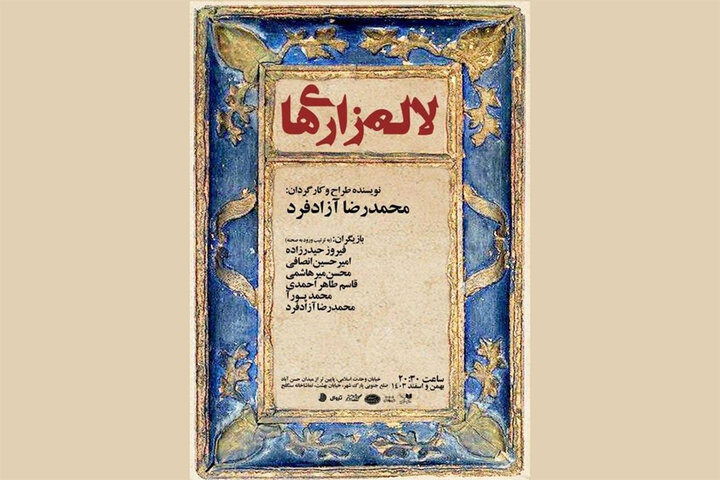 لاله‌زاری‌های
نویسنده طراح و کارگردان:
محمدرضا آزادفرد
بازیگران: (به ترتیب ورود به صحنه)
فیروز حیدرزاده
امیرحسین انصافی
محسن میرهاشمی
قاسم طاهراحمدی
محمد پورآ
محمدرضا آزادفرد
ساعت ۲۰:۳۰
خیابان وحدت اسلامی، پایین تر از میدان حسن آباد
بهمن و اسفند ۱۴۰۳
ضلع جنوبی پارک شهر، خیابان بهشت، تماشاخانه سنگلج
تیوال